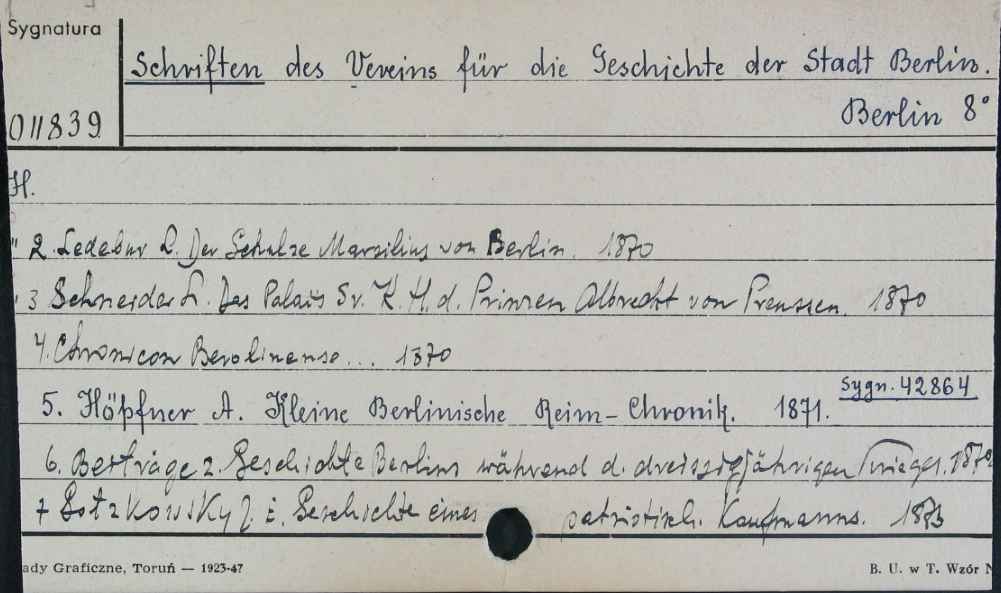 Sygnatura
Schriften des Vereins für die Geschichte der Stadt Berlin.
011839
Berlin 8°
H.
" 2. Ledebur L. Der Schulze Marsilius von Berlin. 1870
" 3 Schneider L. Das Palais Sr. K. H. d. Prinzen Albrecht von Preussen. 1870
4. Chronicon Berolinense... 1870
Sygn. 42864
5. Höpfner A. Kleine Berlinische Reim-Chronik. 1871.
6. Beiträge z. Geschichte Berlins während d. dreissigjährigen Krieges.
7 Gotzkowsky J. E. Geschichte eines patriotisch. Kaufmanns. 1873
ady Graficzne, Toruń — 1923-47
B. U. w T. Wzór N